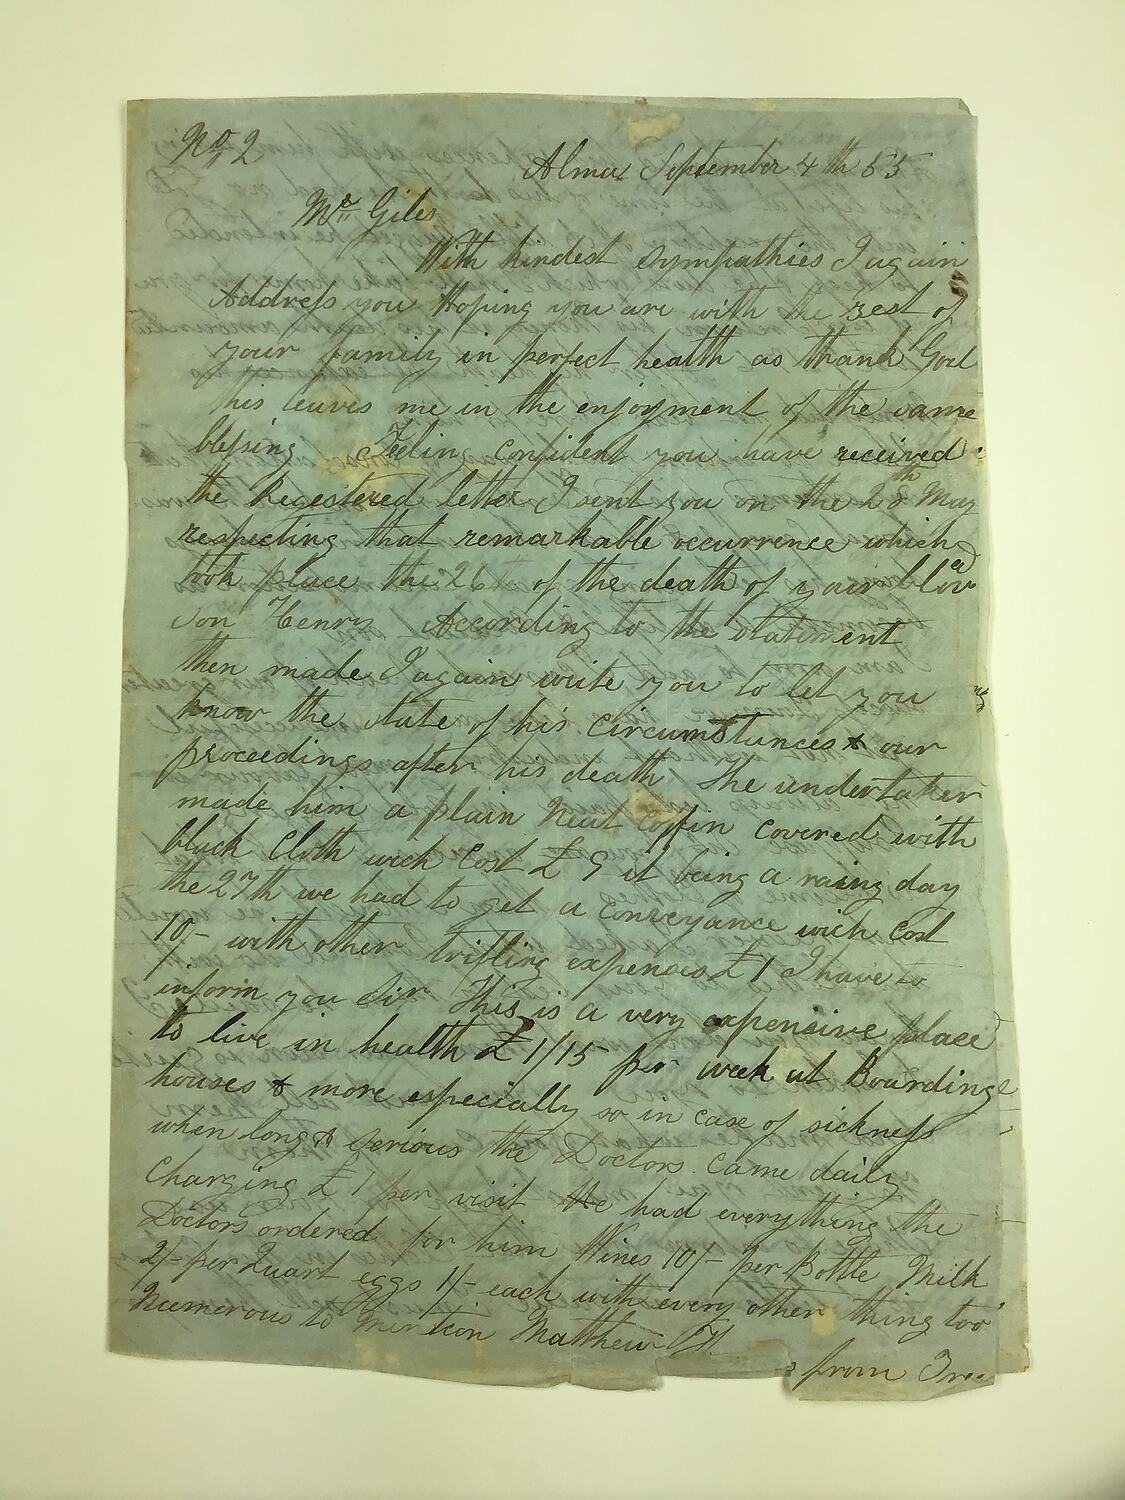 No, 2
Alma September 4th 65
Mr Giles
With kindest sympathies I again
Address you Hoping you are with the rest of
your family in perfect health as thank God
this leaves me in the enjoyment of the same
blessing Feeling confident you have received
the Regestered letter I sent you on the 28th May
respecting that remarkable occurrence which
took place the 26th of the death of your
son Henry According to the statment
then made I again write you to let you
know the state of his Circumstances & our
proceedings after his death The undertaker
made him a plain Neat Coffin Covered with
black Cloth wich Cost £ 9 it being a rainy day
the 27th we had to get a Conveyance wich Cost
10/- with other trifling expences £ 1 I have to
inform you Sir This is a very expensive place
to live in health £ 1/15 per week at Boarding
houses & more especially so in case of sickness
when long & serious the Doctors Came daily
Charging £ 1 per visit He had everything the
Doctors ordered for him Wines 10/- per Bottle Milk
2/- per Quart eggs 1/- each with every other thing too
Numerous to Mention Matthew H
from